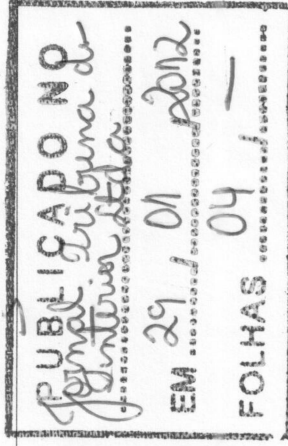 PUBLICADO NO
Jornal Tribuna do
Interior Ltda
EM 29 / 01 / 2012
FOLHAS 04 / —